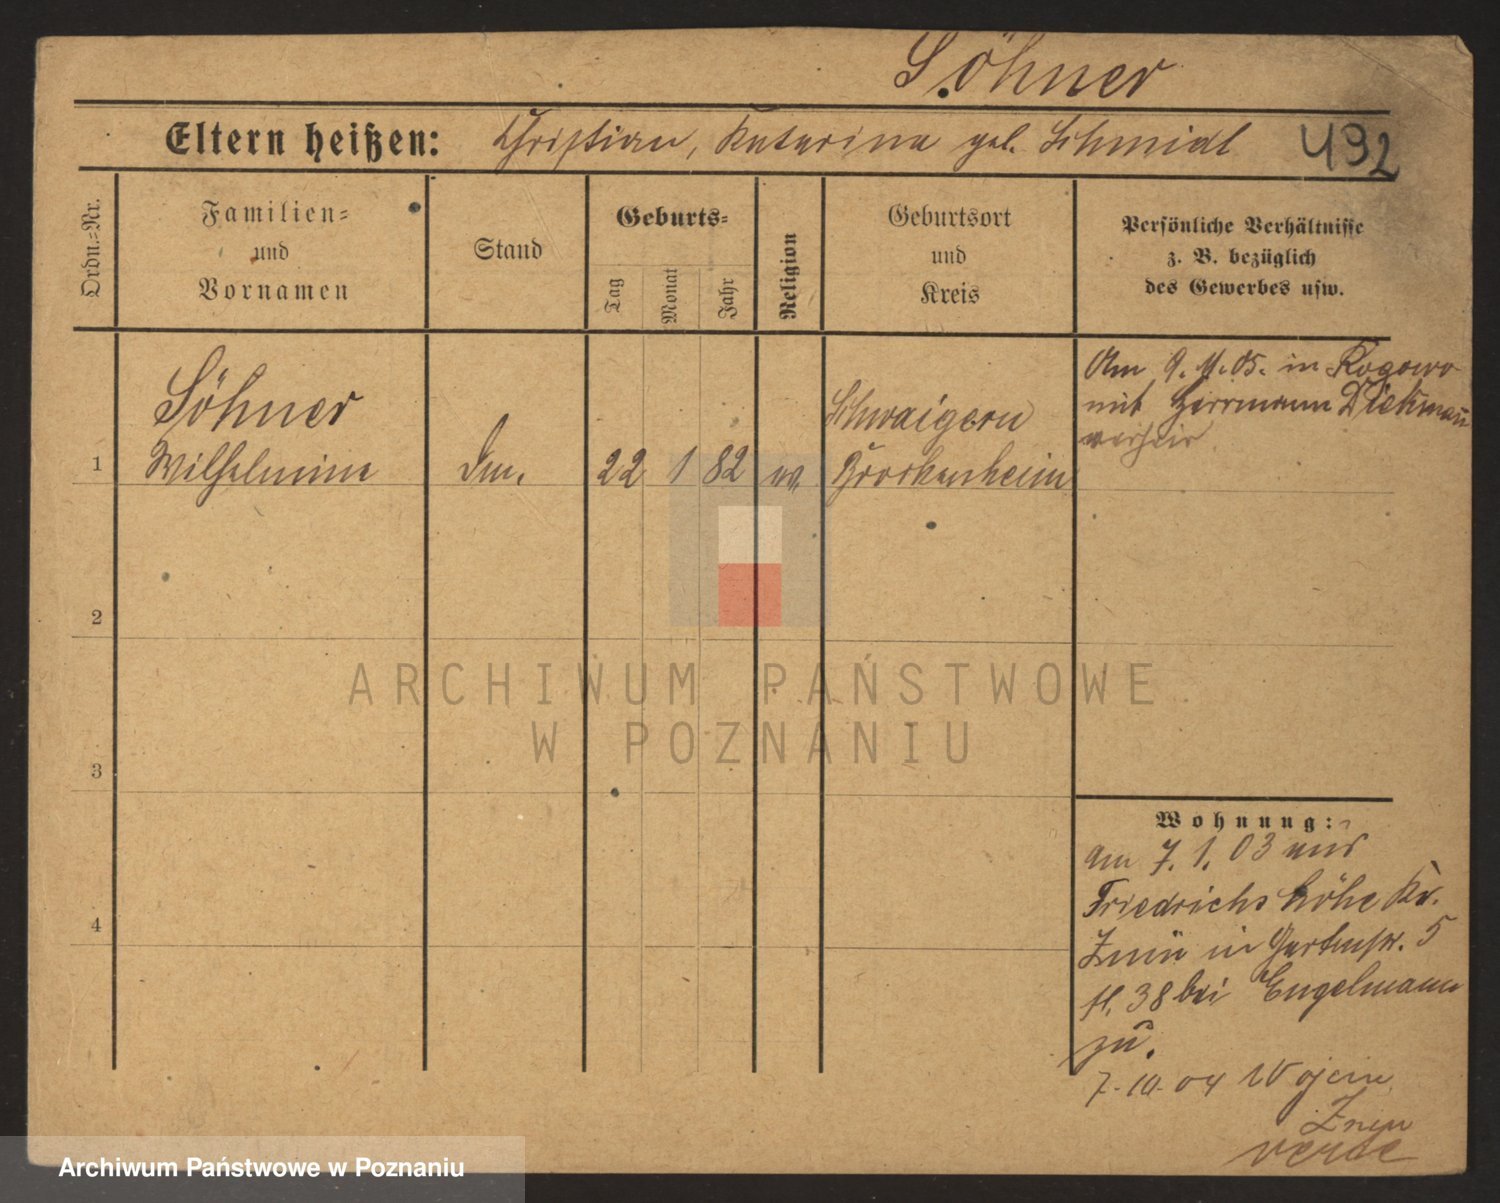 Söhner
Eltern heißen: Christian, Katarina geb. Schmidt 492
Ordn.=Nr.
Familien=
und
Vornamen
Stand
Geburts=
Tag
Monat
Jahr
Religion
Geburtsort
und
Kreis
Persönliche Verhältnisse
z. B. bezüglich
des Gewerbes usw.
1
Söhner
Wilhelmine
22 1 82 ev.
Schwaigern
Brackenheim
Am 9. 11. 05. in Rogowo
mit Herrmann Diekmann
verheir
2
3
4
Wohnung:
am 7. 1. 03 aus
Friedrichshöhe Kr.
Znin in Gartenstr. 5
b/ 38 bei Engelmann
zu.
7. 10. 04 Wojcin
Znin
verde
ARCHIWUM PAŃSTWOWE
W POZNANIU
Archiwum Państwowe w Poznaniu